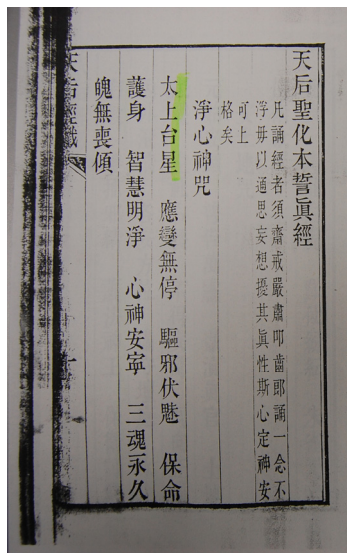 天后聖化本誓眞經
凡誦經者須齋戒嚴肅叩齒郎誦一念不
浮毋以適思妄想擾其眞性斯心定神安
可上
格矣
淨心神咒
太上台星 應變無停 驅邪伏魅 保命
護身 智慧明淨 心神安寧 三魂永久
魄無喪傾
天后經懺